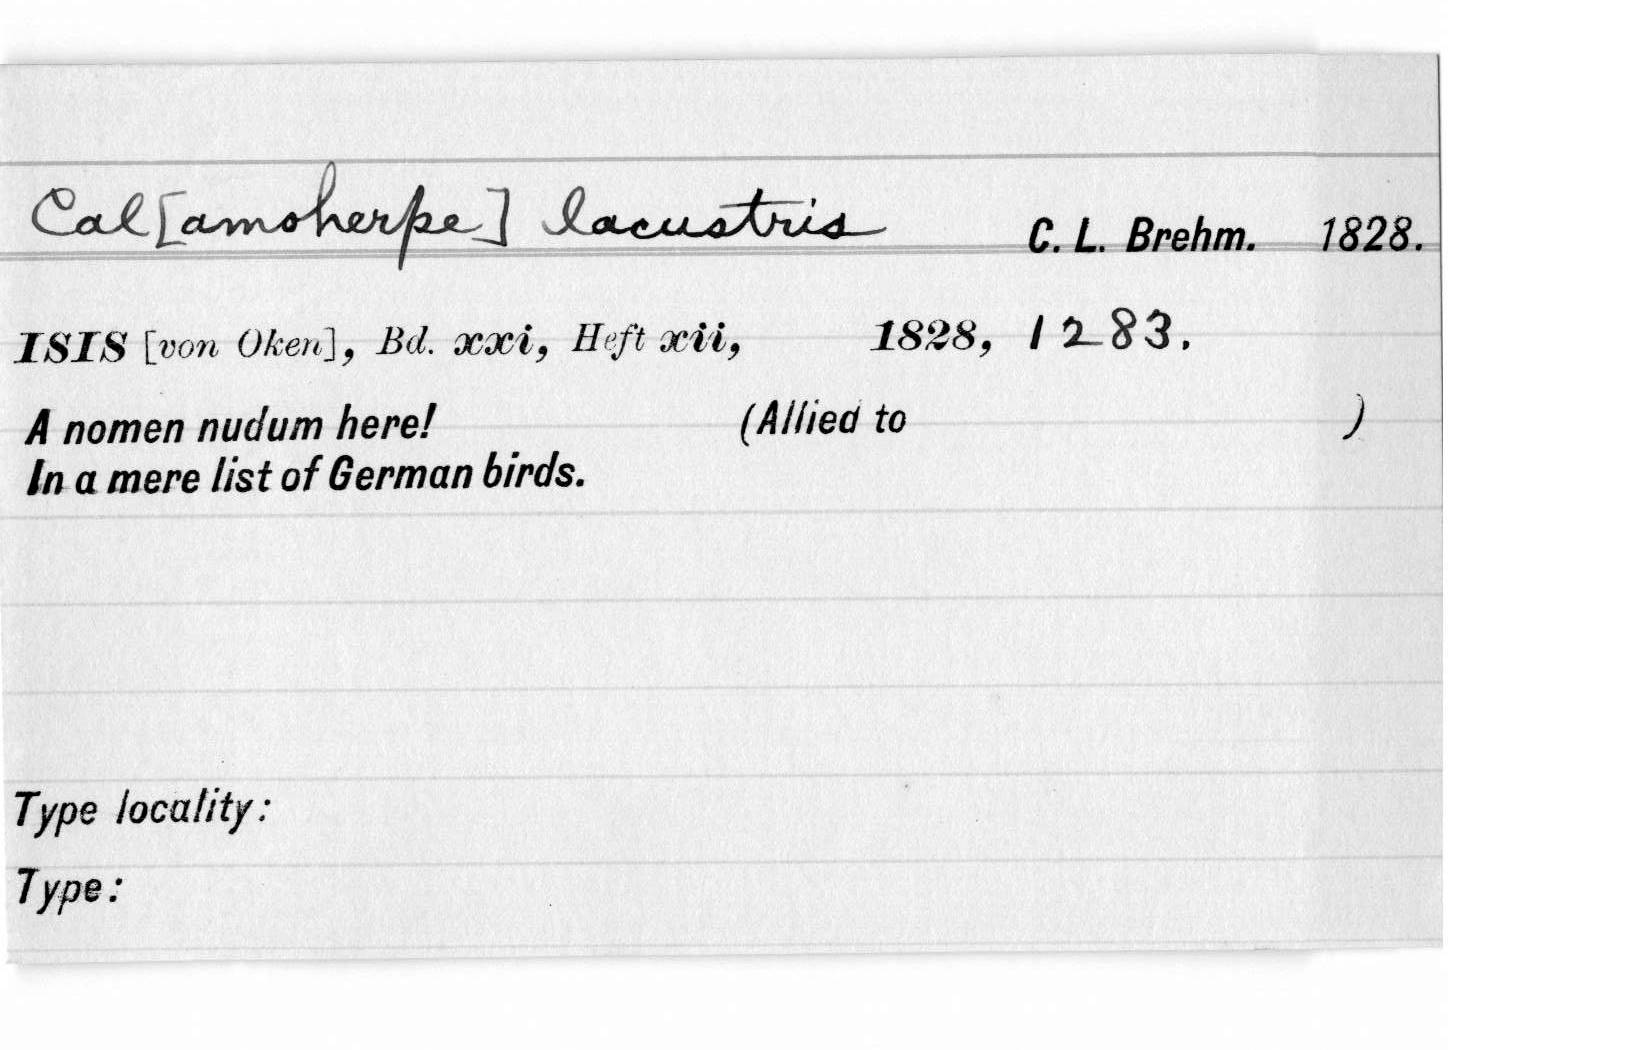 Cal[amoherpe] lacustris C. L. Brehm. 1828.
ISIS [von Oken], Bd. xxi, Heft xii, 1828, 1283.
A nomen nudum here! (Allied to )
In a mere list of German birds.
Type locality:
Type: